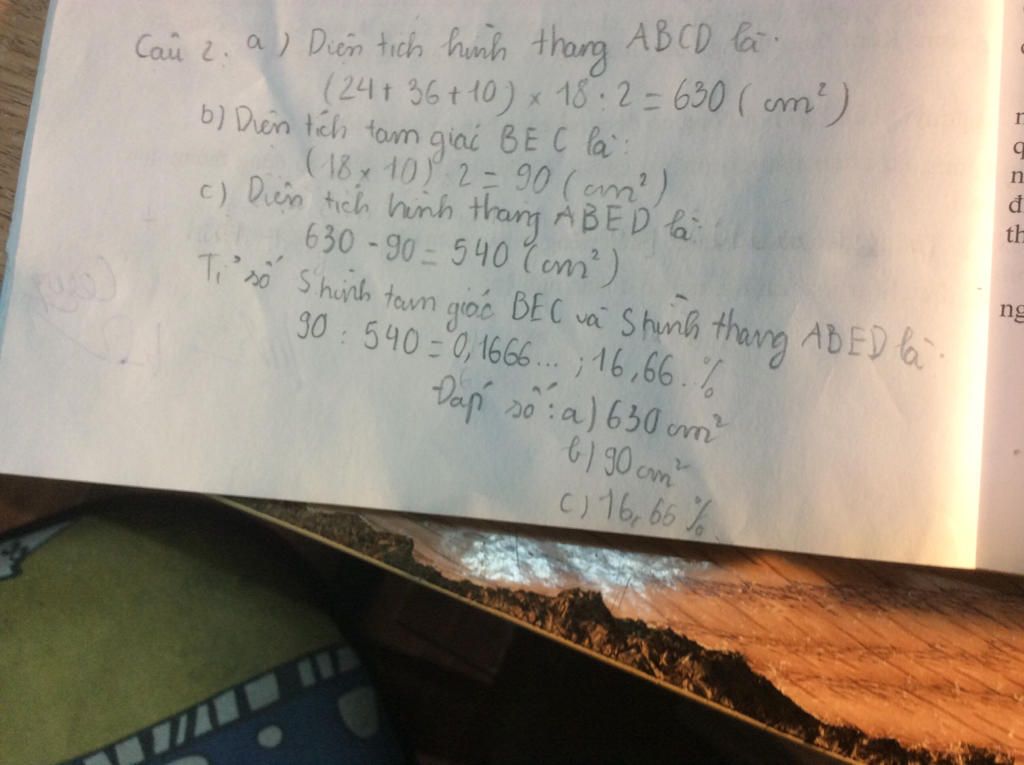 Câu 2. a) Diện tích hình thang ABCD là:
(24 + 36 + 10) × 18 : 2 = 630 (cm²)
b) Diện tích tam giác BEC là:
(18 × 10) : 2 = 90 (cm²)
c) Diện tích hình thang ABED là:
630 - 90 = 540 (cm²)
Tỉ số S hình tam giác BEC và S hình thang ABED là:
90 : 540 = 0,1666... ; 16,66 %
Đáp số: a) 630 cm²
b) 90 cm²
c) 16,66 %